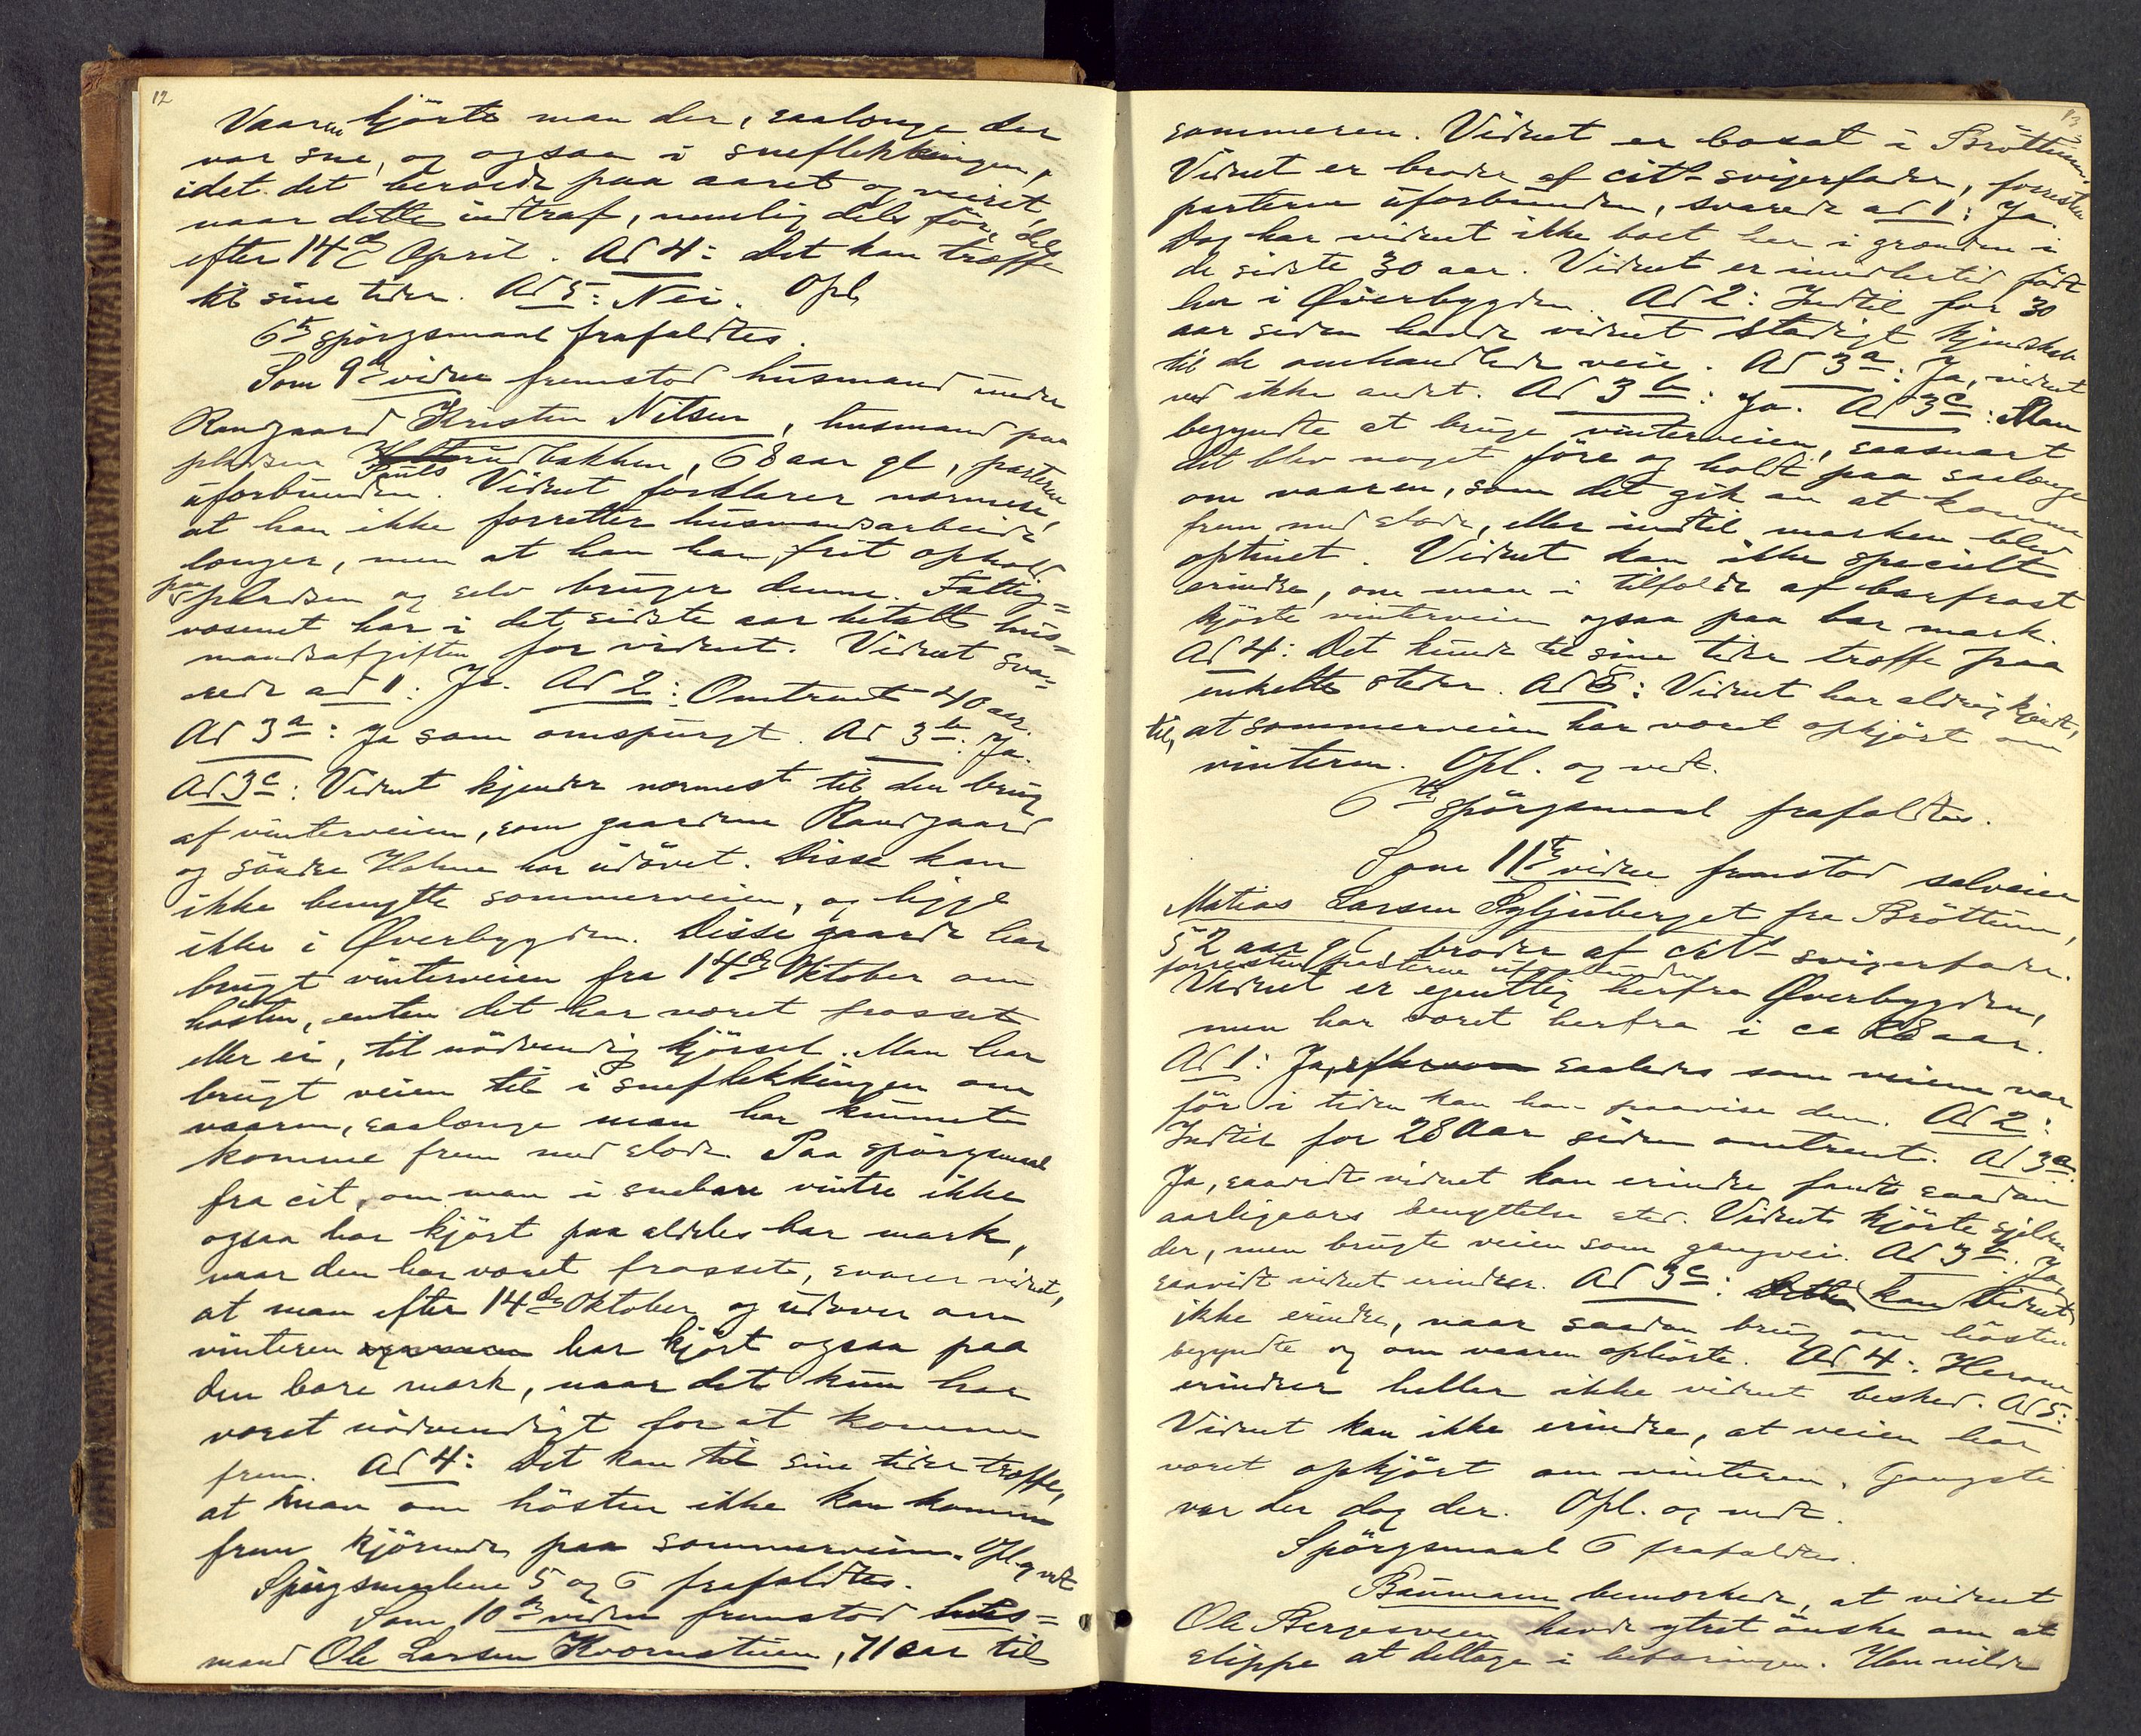 12
Vaaren kjörte man der, saalænge der
var sne, og ogsaa i sneflekkingen,
idet det beroede paa aaret og veiret,
naar dette indtraf, nemlig dels før, dels
efter 14de April. Ad 4: Det kan træffe
til sine tider. Ad 5: Nei. Opl.
6te spörgsmaal frafaldtes.
Som 9de vidne fremstod husmand under
Randgaard Kristen Nilsen, husmand paa
pladsen bakken, 68 aar gl, parterne
Puls
uforbunden. Vidnet forklarer nærmere,
at han ikke forretter husmandsarbeide
længer, men at han har frit ophold
paa pladsen og selv bruger denne. Fattig=
væsenet har i det sidste aar betalt hus=
mandsafgiften for vidnet. Vidnet sva=
rede ad 1: Ja. Ad 2: Omtrent 40 aar.
Ad 3a: Ja som omspurgt. Ad 3b: Ja.
Ad 3c: Vidnet kjender nærmest til den brug
af vinterveien, som gaardene Randgaard
og söndre Holme har udövet. Disse kan
ikke benytte sommerveien, og ligge
ikke i Øverbygden. Disse gaarde har
brugt vinterveien fra 14de Oktober om
hösten, enten det har været frosset
eller ei, til nödvendig kjörsel. Man har
brugt veien til i sneflekkingen om
vaaren, saalænge man har kunnet
komme frem med slæde. Paa spörgsmaal
fra cit, om man i snebare vintre ikke
ogsaa har kjört paa aldeles bar mark,
naar den har været frosset, svarer vidnet,
at man efter 14de Oktober og udover om
vinteren har kjört ogsaa paa
den bare mark, naar det kun har
været nödvendigt for at komme
frem. Ad 4: Det kan til sine tider træffe,
at man om hösten ikke kan komme
frem kjörende paa sommerveien. Opl. og vedt.
Spörgsmaalene 5 og 6 frafaldtes.
Som 10de vidne fremstod =
mand Ole Larsen Kvernstuen, 71 aar til
13
sommeren. Vidnet er bosat i Bröttum.
Vidnet er broder af cit's svigerfader, forresten
parterne uforbunden, svarede ad 1: Ja.
Dog har vidnet ikke boet her i grænden i
de sidste 30 aar. Vidnet er imidlertid född
her i Øverbygden. Ad 2: Indtil for 30
aar siden havde vidnet stadigt kjendskab
til de omhandlede veie. Ad 3a: Ja, vidnet
ved ikke andet. Ad 3b: Ja. Ad 3c: Man
begyndte at bruge vinterveien, saasnart
det blev noget före og holdt paa saalænge
om vaaren, som det gik an at komme
frem med slæde, eller indtil marken blev
optinet. Vidnet kan ikke specielt
erindre, om man i tilfælde af barfrost
kjörte vinterveien ogsaa paa bar mark.
Ad 4: Det kunde til sine tider træffe paa
enkelte steder. Ad 5: Vidnet har aldrig kjendt
til, at sommerveien har været opkjört om
vinteren. Opl. og vedt.
6te spörgsmaal frafaldtes.
Som 11te vidne fremstod selveier
Matias Larsen Syljuberget fra Bröttum,
52 aar gl, broder af cit's svigerfader.
forresten parterne uforbunden
Vidnet er egentlig herfra Øverbygden,
men har været herfra i ca 28 aar.
Ad 1: Ja, eftersom saaledes som veiene var
för i tiden kan han paavise dem. Ad 2:
Indtil for 28 Aar siden omtrent. Ad 3a:
Ja, saavidt vidnet kan erindre fandt saadan
aarligaars benyttelse sted. Vidnet kjörte sjelden
der, men brugte veien som gangvei. Ad 3b: Ja,
saavidt vidnet erindrer. Ad 3c: Dette kan vidnet
ikke erindre, naar saadan brug om hösten
begyndte og om vaaren ophörte. Ad 4: Herom
erindrer heller ikke vidnet besked. Ad 5:
Vidnet kan ikke erindre, at veien har
været opkjört om vinteren. Gangsti
var der dog der. Opl. og vedt.
Spörgsmaal 6 frafaldtes.
Baumann bemærkede, at vidnet
Ole Bergesveen havde ytret önske om at
slippe at deltage i befaringen. Han vilde